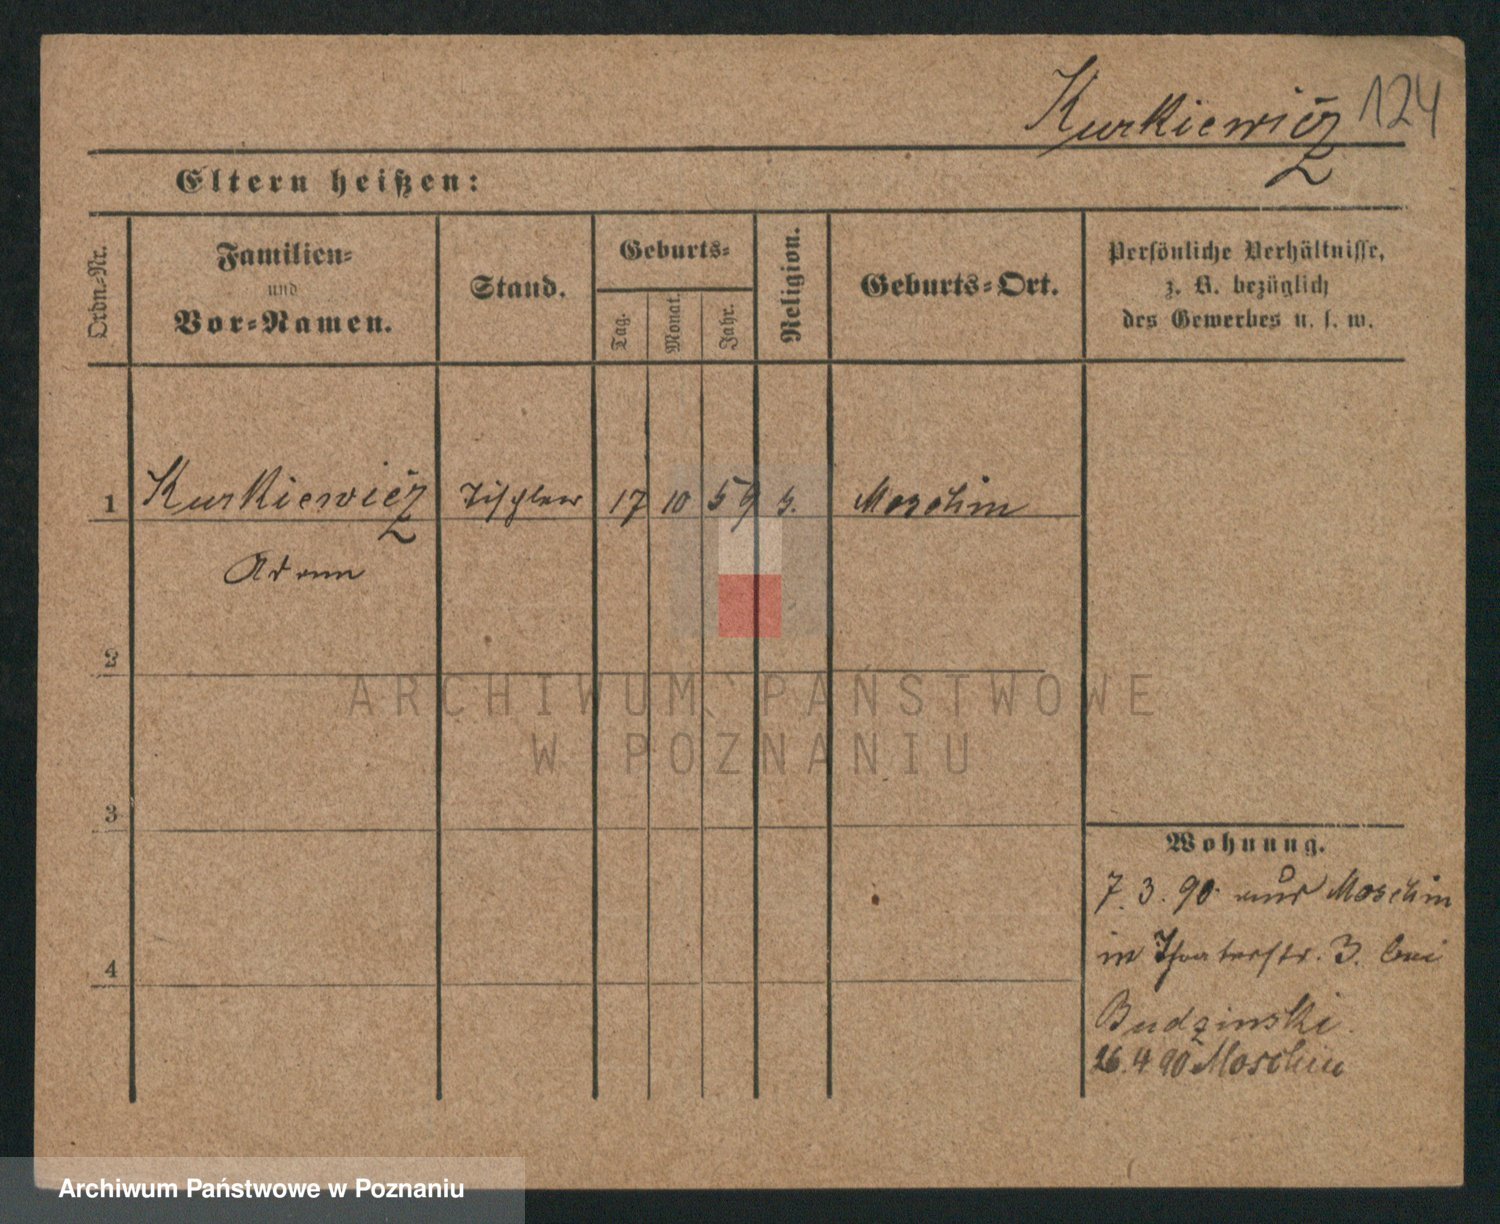 Kurkiewicz 124
Eltern heißen:
Ordn=Nr.
Familien=
und
Vor=Namen.
Stand.
Geburts=
Tag.
Monat.
Jahr.
Religion.
Geburts=Ort.
Persönliche Verhältnisse,
z. B. bezüglich
des Gewerbes u. s. w.
1 Kurkiewicz Tischler 17 10 59 Moschin
Adam
2
3
4
Wohnung.
7. 3. 90 aus Moschin
in Theaterstr. 3. bei
Budzinski.
26. 4 90 Moschin
ARCHIWUM PAŃSTWOWE
W POZNANIU
Archiwum Państwowe w Poznaniu